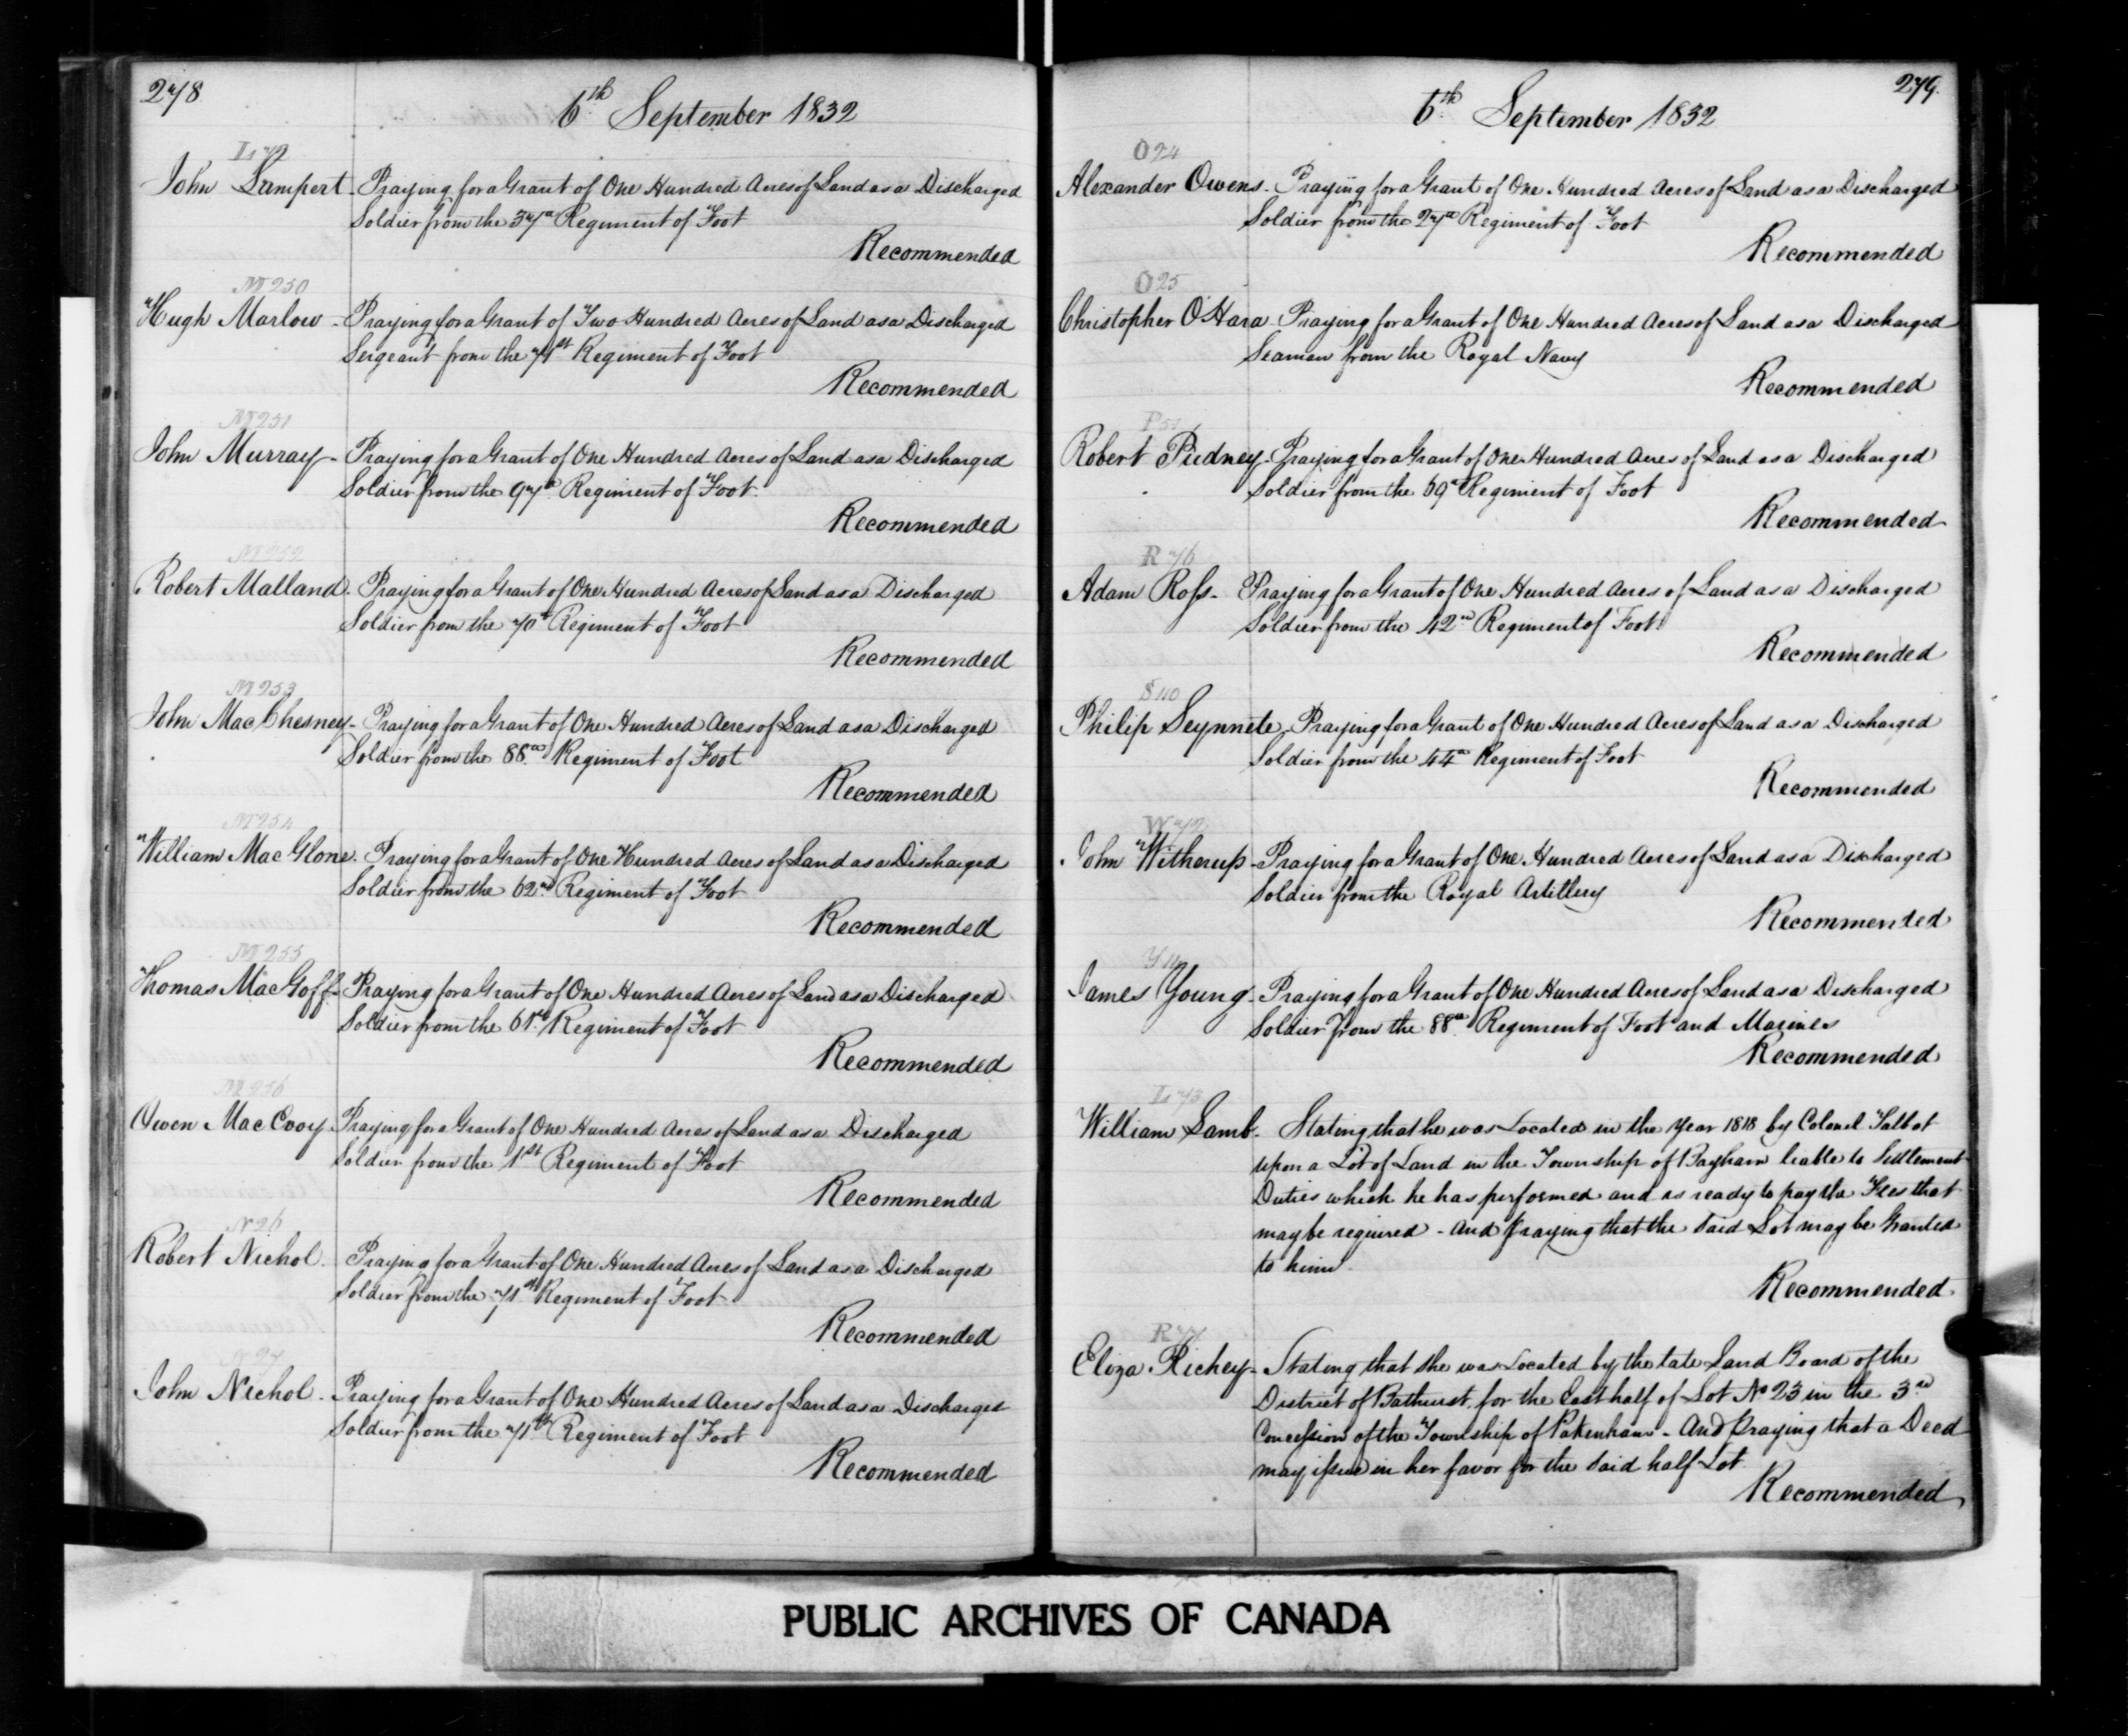 278
6th September 1832
L 72
John Lampert - Praying for a Grant of One Hundred Acres of Land as a Discharged
Soldier from the 37th Regiment of Foot
Recommended
M 250
Hugh Marlow - Praying for a Grant of Two Hundred Acres of Land as a Discharged
Sergeant from the 71st Regiment of Foot
Recommended
M 251
John Murray - Praying for a Grant of One Hundred Acres of Land as a Discharged
Soldier from the 97th Regiment of Foot.
Recommended
M 252
Robert Malland. Praying for a Grant of One Hundred Acres of Land as a Discharged
Soldier from the 70th Regiment of Foot
Recommended
M 253
John MacChesney - Praying for a Grant of One Hundred Acres of Land as a Discharged
Soldier from the 88th Regiment of Foot
Recommended
M 254
William MacGlone. Praying for a Grant of One Hundred Acres of Land as a Discharged
Soldier from the 62nd Regiment of Foot
Recommended
M 255
Thomas MacGoff - Praying for a Grant of One Hundred Acres of Land as a Discharged
Soldier from the 61st Regiment of Foot
Recommended
M 256
Owen MacEvoy. Praying for a Grant of One Hundred Acres of Land as a Discharged
Soldier from the 1st Regiment of Foot
Recommended
N 26
Robert Nichol. Praying for a Grant of One Hundred Acres of Land as a Discharged
Soldier from the 71st Regiment of Foot
Recommended
N 27
John Nichol - Praying for a Grant of One Hundred Acres of Land as a Discharged
Soldier from the 71st Regiment of Foot
Recommended
279.
6th September 1832
O 24
Alexander Owens - Praying for a Grant of One Hundred Acres of Land as a Discharged
Soldier from the 27th Regiment of Foot
Recommended
O 25
Christopher O'Hara - Praying for a Grant of One Hundred Acres of Land as a Discharged
Seaman from the Royal Navy
Recommended
Robert Pudney - Praying for a Grant of One Hundred Acres of Land as a Discharged
Soldier from the 69th Regiment of Foot
Recommended
R 76
Adam Ross - Praying for a Grant of One Hundred Acres of Land as a Discharged
Soldier from the 42nd Regiment of Foot
Recommended
S 110
Philip Seynnete - Praying for a Grant of One Hundred Acres of Land as a Discharged
Soldier from the 44th Regiment of Foot
Recommended
W 72
John Witherup - Praying for a Grant of One Hundred Acres of Land as a Discharged
Soldier from the Royal Artillery
Recommended
James Young - Praying for a Grant of One Hundred Acres of Land as a Discharged
Soldier from the 88th Regiment of Foot and Marines
Recommended
L 73
William Lamb. Stating that he was Located in the Year 1818 by Colonel Talbot
upon a Lot of Land in the Township of Bayham liable to Settlement
Duties which he has performed and is ready to pay the Fees that
may be required - and Praying that the said Lot may be Granted
to him
Recommended
R 77
Eliza Richey - Stating that she was Located by the late Land Board of the
District of Bathurst for the East half of Lot No 23 in the 3rd
Concession of the Township of Pakenham - And Praying that a Deed
may issue in her favor for the said half Lot
Recommended
PUBLIC ARCHIVES OF CANADA